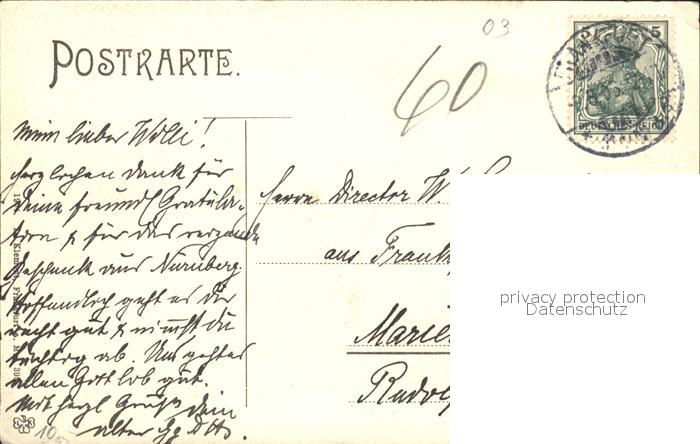 POSTKARTE.
03
60
5
DEUTSCHES REICH
Mein lieber Willi!
Herzlichen Dank für
Deine freundl Gratula-
tion & für das reizende
Geschenk aus Nürnberg.
Hoffentlich geht es Dir
recht gut & nimmst du
tüchtig ab. Uns geht es
allen Gottlob gut.
Mit herzl Gruß dein
alter
Herrn Director W.
aus Frankf
Marie
Rudol
privacy protection
Datenschutz